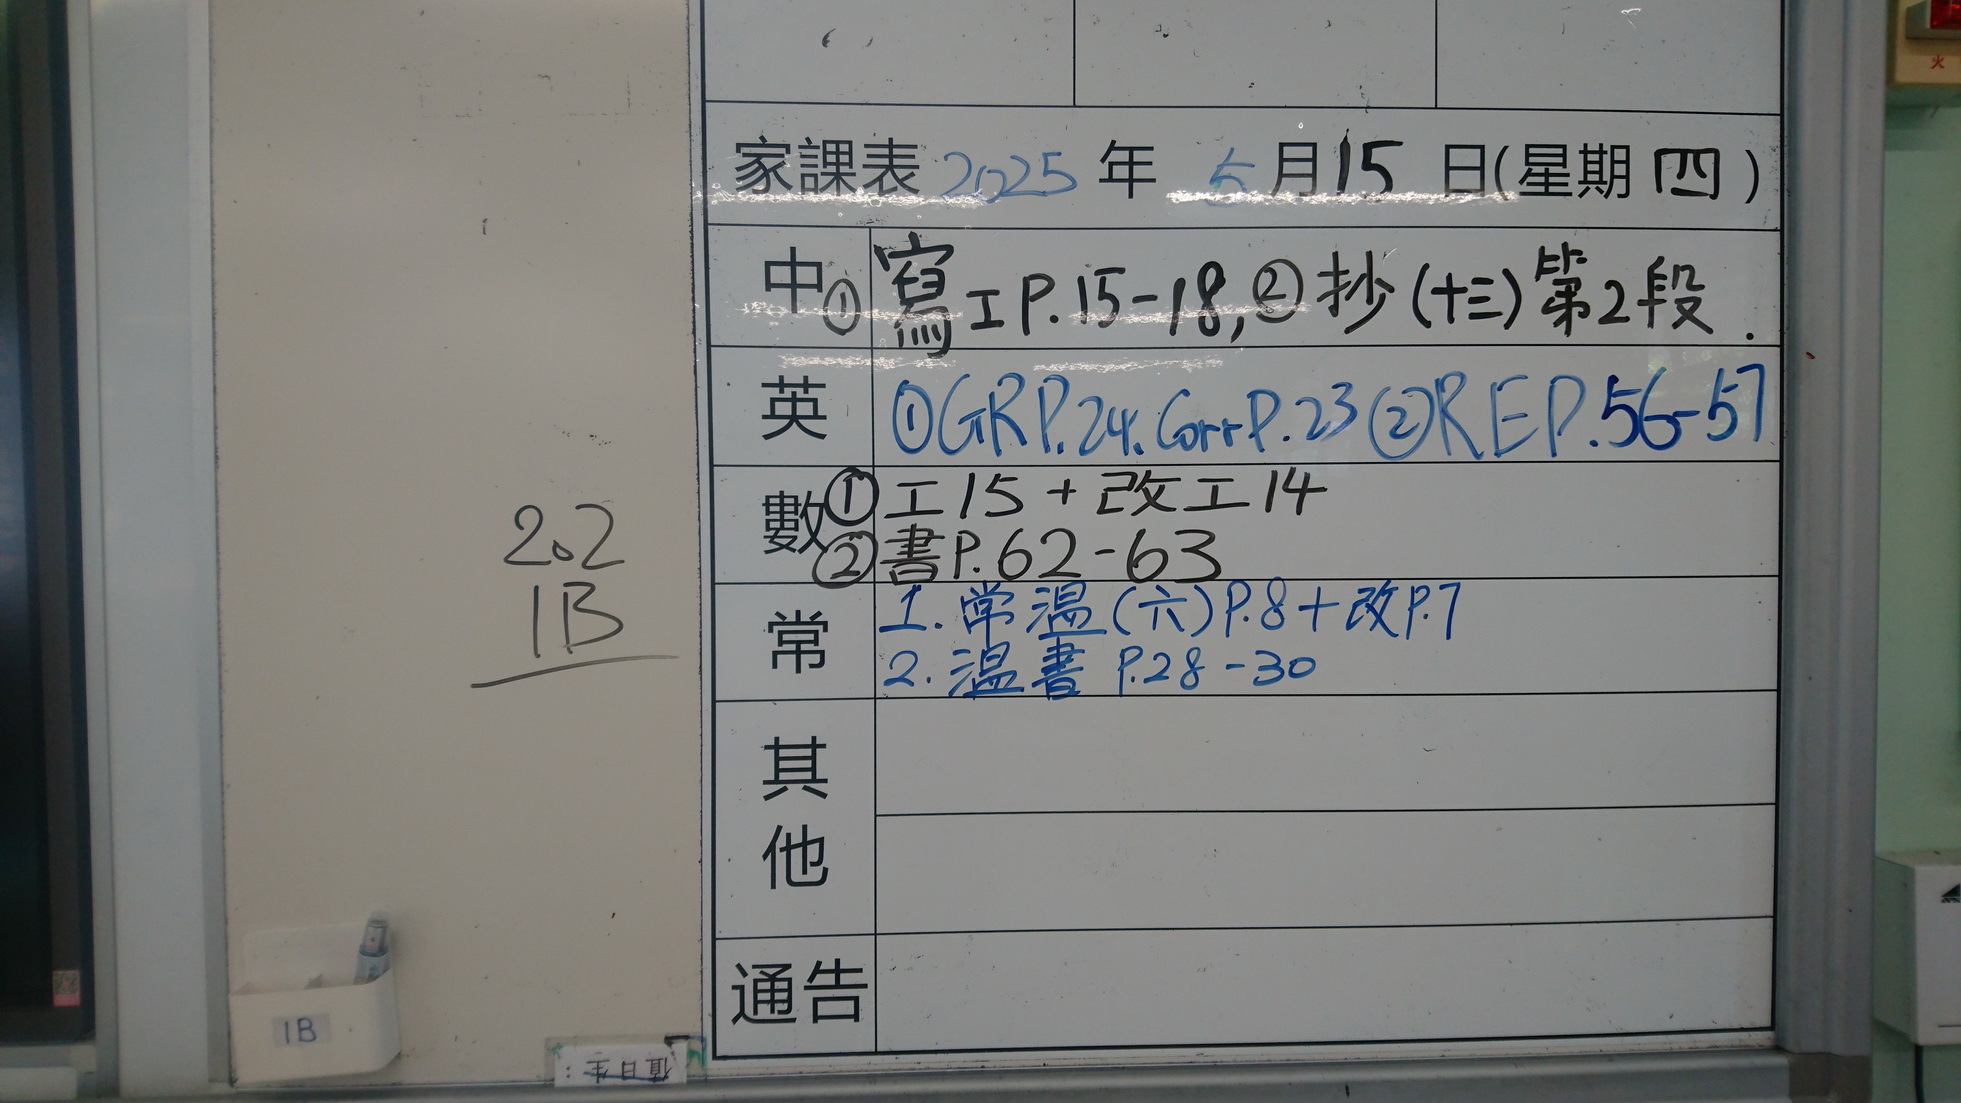 家課表 2025 年 5 月 15 日(星期 四)
中 ① 寫工P.15-18, ② 抄(十三)第2段.
英 ①GRP.24. Corr P.23 ②REP.56-57
數 ① 工15 + 改工14
② 書P.62-63
常 1. 常溫(六)P.8+改P.7
2. 溫書 P.28-30
其他
通告
2.2
1B
1B
值日生:
火